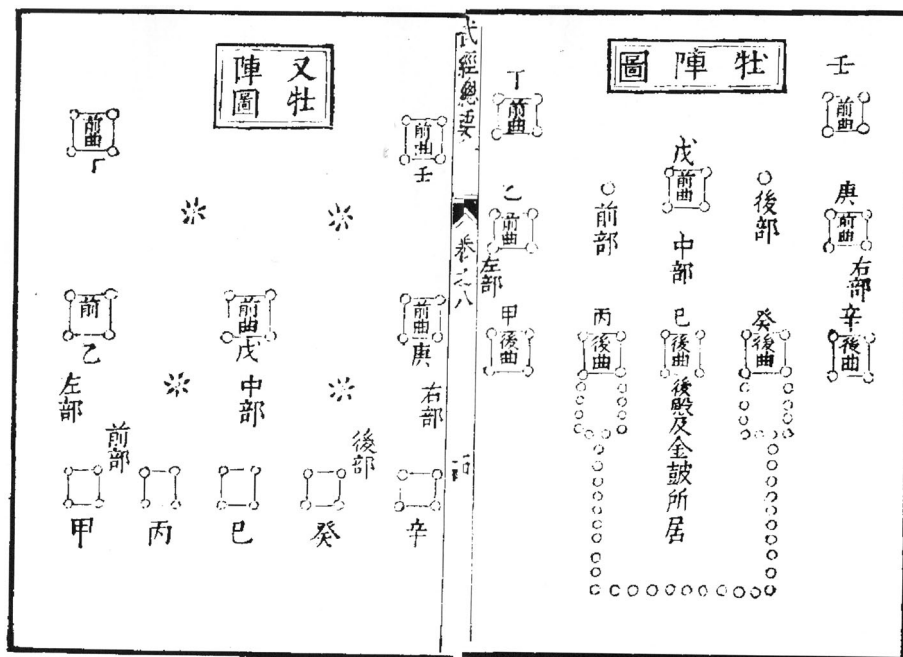 牡陣圖
壬
前曲
庚
前曲
右部
辛
後曲
後部
癸
後曲
戊
前曲
中部
巳
後曲
後殿及金鼓所居
前部
丙
後曲
丁
前曲
乙
前曲
左部
甲
後曲
武經總要
卷之八
又牡
陣圖
前曲
壬
前曲
庚
右部
後部
辛
癸
前曲
戊
中部
巳
前曲
前
乙
左部
前部
丙
甲